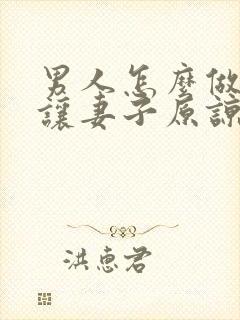 男人怎麼做
讓妻子原諒
洪惠君